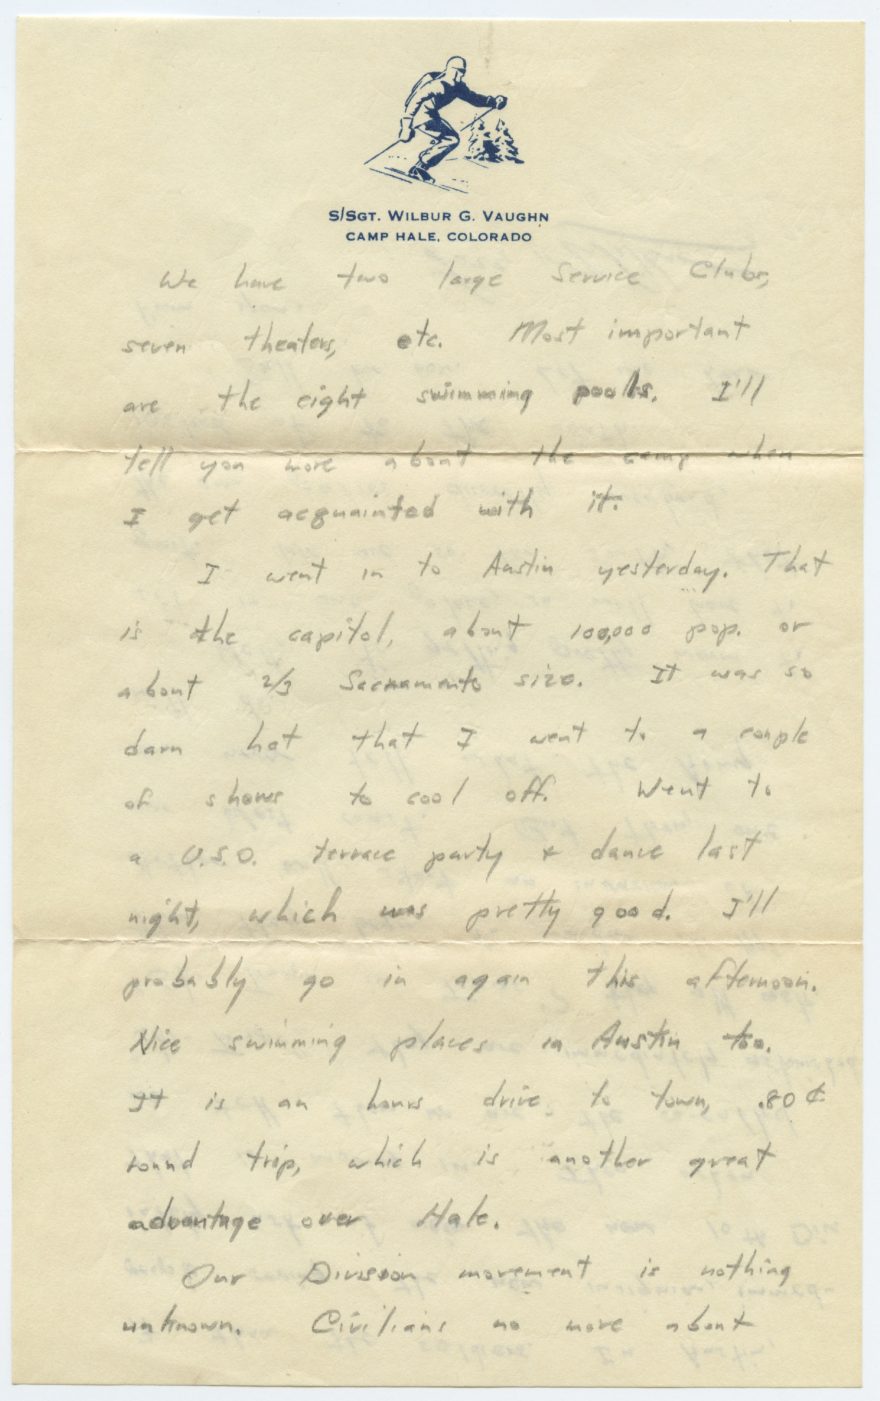 S/SGT. WILBUR G. VAUGHN
CAMP HALE, COLORADO
We have two large Service Clubs,
seven theaters, etc. Most important
are the eight swimming pools. I'll
tell you more about the camp when
I get acquainted with it.
I went in to Austin yesterday. That
is the capitol, about 100,000 pop. or
about 2/3 Sacramento size. It was so
darn hot that I went to a couple
of shows to cool off. Went to
a U.S.O. terrace party + dance last
night, which was pretty good. I'll
probably go in again this afternoon.
Nice swimming places in Austin too.
It is an hours drive to town, .80¢
round trip, which is another great
advantage over Hale.
Our Division movement is nothing
unknown. Civilians no more about